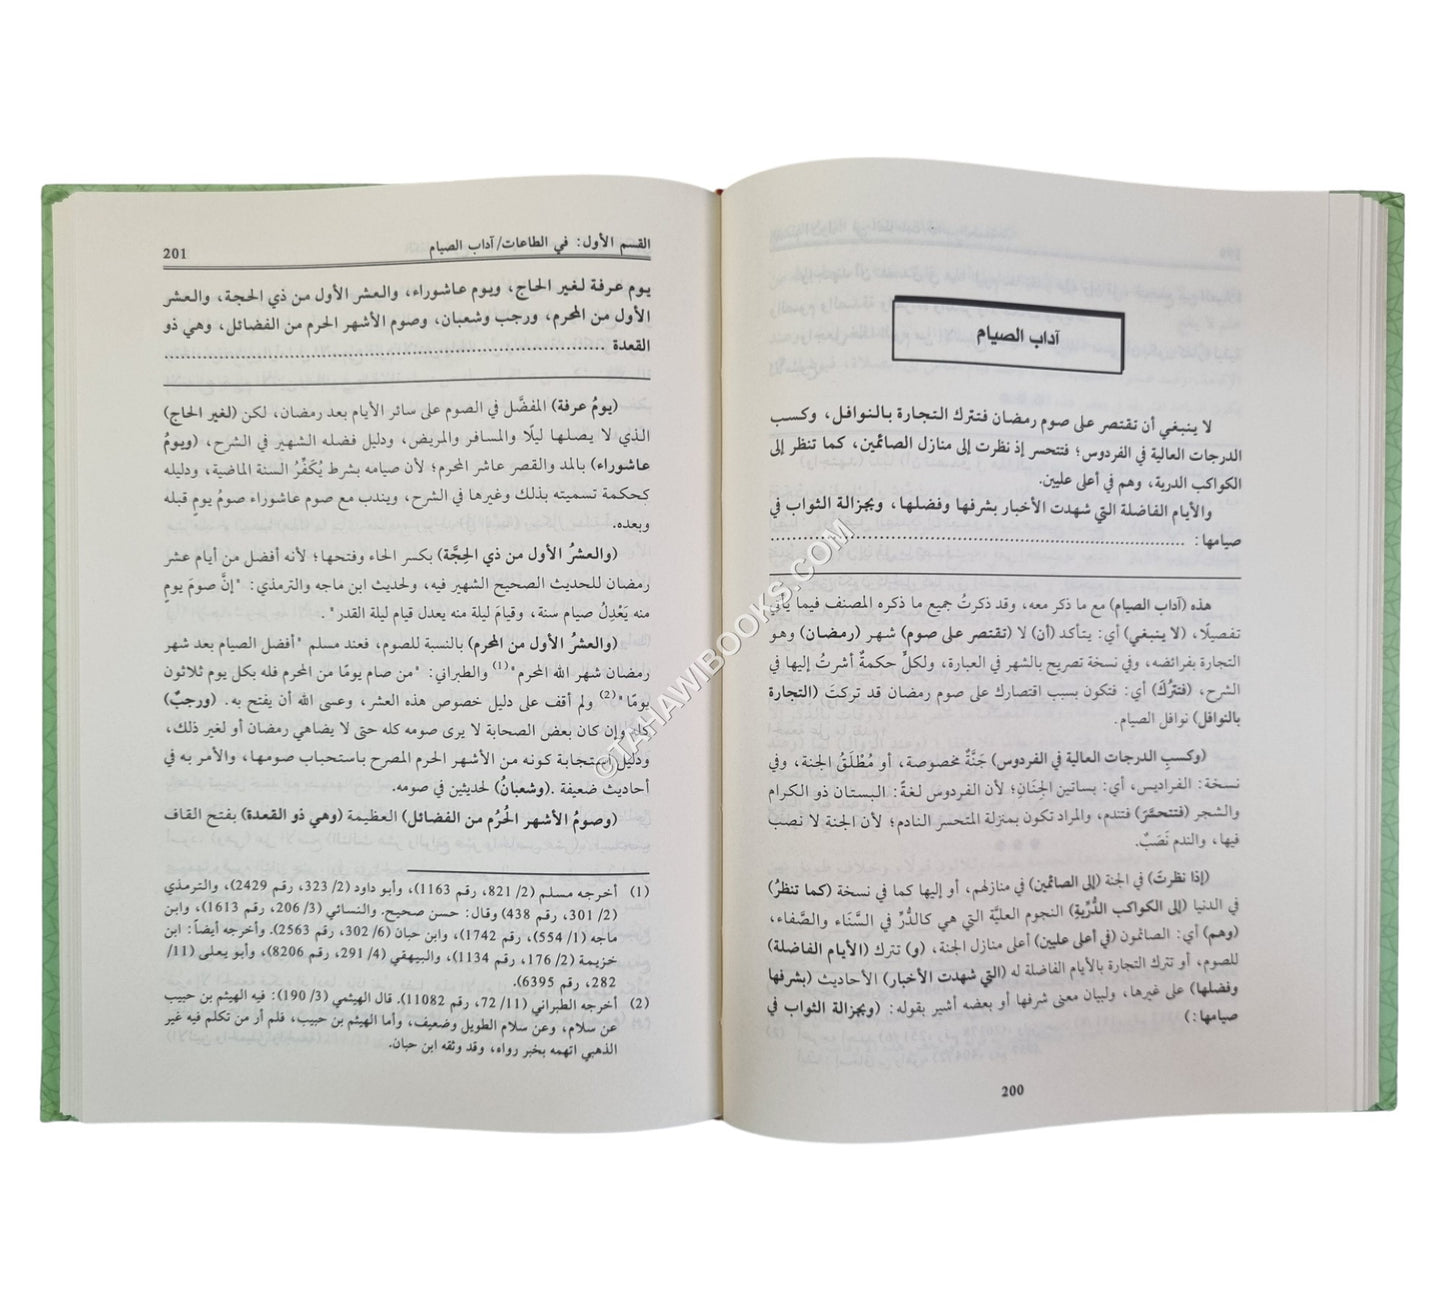 آداب الصيام
لا ينبغي أن تقتصر على صوم رمضان فتترك التجارة بالنوافل، وكسب
الدرجات العالية في الفردوس؛ فتتحسر إذ نظرت إلى منازل الصائمين، كما تنظر إلى
الكواكب الدرية، وهم في أعلى عليين.
والأيام الفاضلة التي شهدت الأخبار بشرفها وفضلها، وبجزالة الثواب في
صيامها: ................................................................
هذه (آداب الصيام) مع ما ذكر معه، وقد ذكرتُ جميع ما ذكره المصنف فيما يأتي
تفصيلًا، (لا ينبغي) أي: يتأكد (أن) لا (تقتصر على صوم) شهر (رمضان) وهو
التجارة بفرائضه، وفي نسخة تصريح بالشهر في العبارة، ولكلٍّ حكمةٌ أشرتُ إليها في
الشرح، (فتتْركَ) أي: فتكون بسبب اقتصارك على صوم رمضان قد تركتَ (التجارة
بالنوافل) نوافل الصيام.
(وكسبِ الدرجات العالية في الفردوس) جَنَّةٌ مخصوصة، أو مُطْلَقُ الجنة، وفي
نسخة: الفراديس، أي: بساتين الجِنَانِ؛ لأن الفردوس لغةً: البستان ذو الكرام
والشجر (فتتحسَّرَ) فتندم، والمراد تكون بمنزلة المتحسر النادم؛ لأن الجنة لا نصب
فيها، والندم نَصَبٌ.
(إذا نظرتَ) في الجنة (إلى الصائمين) في منازلهم، أو إليها كما في نسخة (كما تنظرُ)
في الدنيا (إلى الكواكب الدُّرِّيةِ) النجوم العليَّة التي هي كالدُّرِّ في السَّنَاء والصَّفاء،
(وهم) أي: الصائمون (في أعلى عليين) أعلى منازل الجنة، (و) تترك (الأيام الفاضلة)
للصوم، أو تترك التجارة بالأيام الفاضلة له (التي شهدت الأخبار) الأحاديث (بشرفها
وفضلها) على غيرها، ولبيان معنى شرفها أو بعضه أشير بقوله: (وبجزالة الثواب في
صيامها:)
200
القسم الأول: في الطاعات/آداب الصيام 201
يوم عرفة لغير الحاج، ويوم عاشوراء، والعشر الأول من ذي الحجة، والعشر
الأول من المحرم، ورجب وشعبان، وصوم الأشهر الحرم من الفضائل، وهي ذو
القعدة ................................................................
(يومُ عرفة) المفضَّل في الصوم على سائر الأيام بعد رمضان، لكن (لغير الحاج)
الذي لا يصلها ليلًا والمسافر والمريض، ودليل فضله الشهير في الشرح، (ويومُ
عاشوراء) بالمد والقصر عاشر المحرم؛ لأن صيامه بشرط يُكَفِّرُ السنة الماضية، ودليله
كحكمة تسميته بذلك وغيرها في الشرح، ويندب مع صوم عاشوراء صومُ يومٍ قبله
وبعده.
(والعشرُ الأول من ذي الحِجَّة) بكسر الحاء وفتحها؛ لأنه أفضل من أيام عشر
رمضان للحديث الصحيح الشهير فيه، ولحديث ابن ماجه والترمذي: "إنَّ صومَ يومٍ
منه يَعْدِلُ صيام سنة، وقيامَ ليلة منه يعدل قيام ليلة القدر".
(والعشرُ الأول من المحرم) بالنسبة للصوم، فعند مسلم "أفضل الصيام بعد شهر
رمضان شهر الله المحرم"(1) والطبراني: "من صام يومًا من المحرم فله بكل يوم ثلاثون
يومًا"(2) ولم أقف على دليل خصوص هذه العشر، وعسى الله أن يفتح به. (ورجبٌ)
كله وإن كان بعض الصحابة لا يرى صومه كله حتى لا يضاهي رمضان أو لغير ذلك،
ودليل استجابة كونه من الأشهر الحرم المصرح باستحباب صومها، والأمر به في
أحاديث ضعيفة .(وشعبانُ) لحديثين في صومه.
(وصومُ الأشهر الحُرُم من الفضائل) العظيمة (وهي ذو القعدة) بفتح القاف
(1) أخرجه مسلم (2/ 821، رقم 1163)، وأبو داود (2/ 323، رقم 2429)، والترمذي
(2/ 301، رقم 438) وقال: حسن صحيح. والنسائي (3/ 206، رقم 1613)، وابن
ماجه (1/ 554)، رقم 1742)، وابن حبان (6/ 302، رقم 2563). وأخرجه أيضاً: ابن
خزيمة (2/ 176، رقم 1134)، والبيهقي (4/ 291، رقم 8206)، وأبو يعلى (11/
282، رقم 6395).
(2) أخرجه الطبراني (11/ 72، رقم 11082). قال الهيثمي (3/ 190): فيه الهيثم بن حبيب
عن سلام، وعن سلام الطويل وضعيف، وأما الهيثم بن حبيب، فلم أر من تكلم فيه غير
الذهبي اتهمه بخبر رواه، وقد وثقه ابن حبان.
©TAHAWIBOOKS.COM